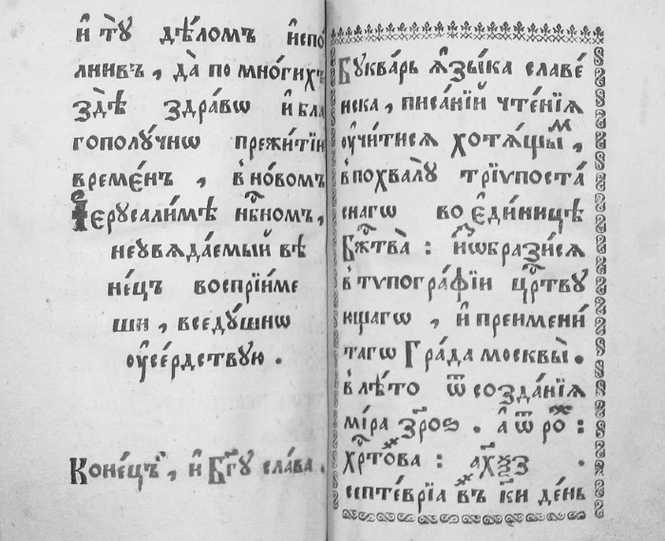 и҆ тꙋ̀ дѣ́ломъ и҆спо
лнивъ, да̀ по мно́гихъ
здѣ̀ здра́вѡ и҆ бла
гополꙋ́чнѡ прежи́тїи
време́нъ, в но́вомъ
І҆ерꙋсали́мѣ нб҃номъ,
неꙋвѧда́емый вѣ
не́цъ воспрїи́ме
ши, вседꙋ́шнѡ
ѹ҆се́рдствꙋю.
Коне́цъ, и҆ Бг҃ꙋ сла́ва.
Бꙋква́рь ꙗ҆зы́ка славе́
нска, писа́нїй чте́нїѧ
ѹ҆чи́тисѧ хотѧ́щыⷨ,
в похва́лꙋ трїѵпоста́
снагѡ во є҆ди́ницѣ
Бж҃тва̀: и҆ѡбрази́сѧ
в тѵпогра́фїи црⷭ҇твꙋ
ющагѡ, и҆ преимени́
тагѡ Гра́да москвы̀.
в лѣ́то ѿ созда́нїѧ
мі́ра ҂зрос. а҆ ѿ роⷤ:
хрⷭ҇това: ҂ахѯз.
септе́врїа въ к҃и де́нь